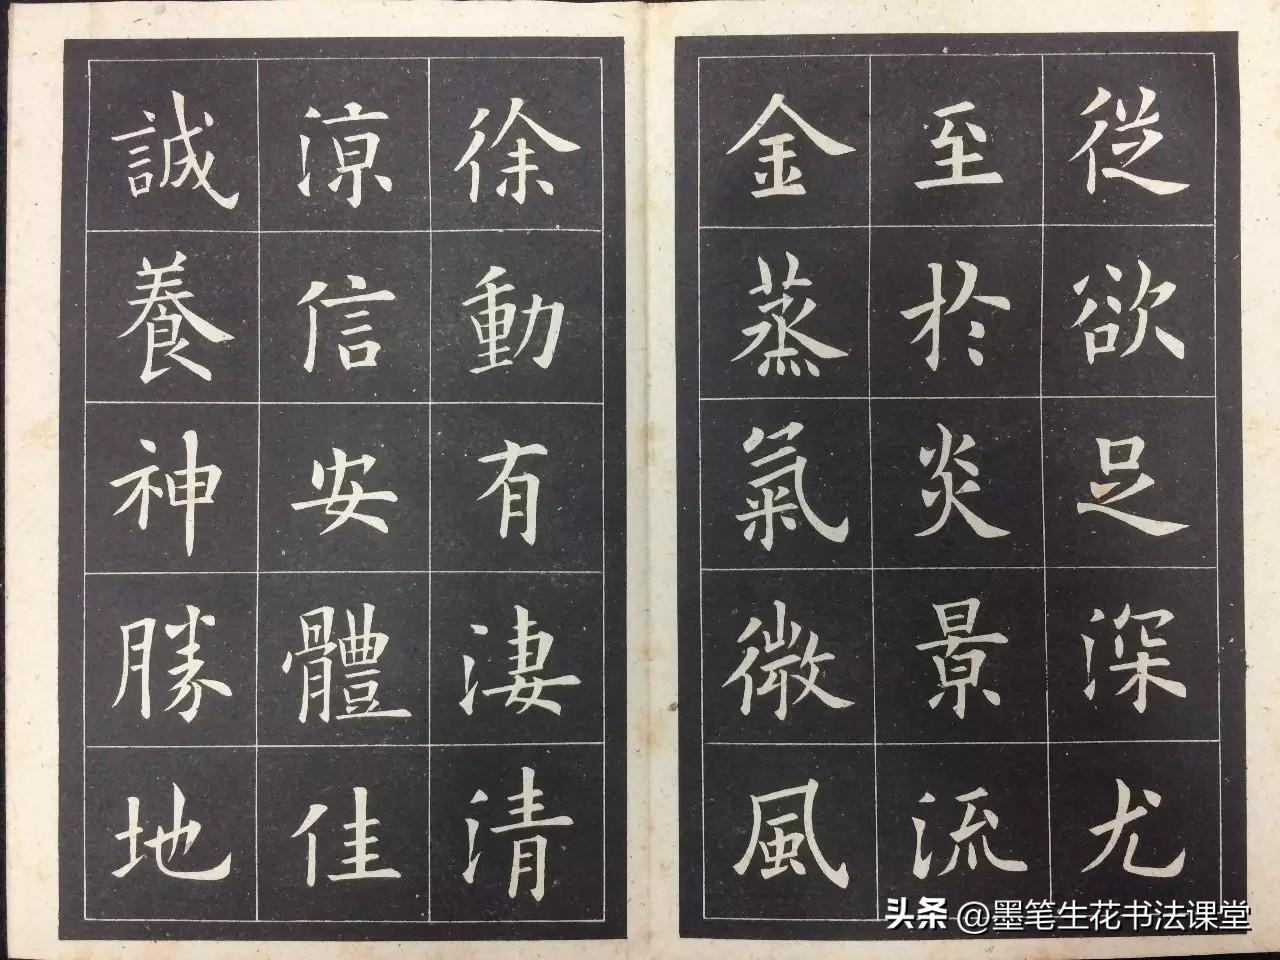 從欲足深尤
至於炎景流
金蒸氣微風
徐動有淒清
涼信安體佳
誠養神勝地
头条 @墨笔生花书法课堂